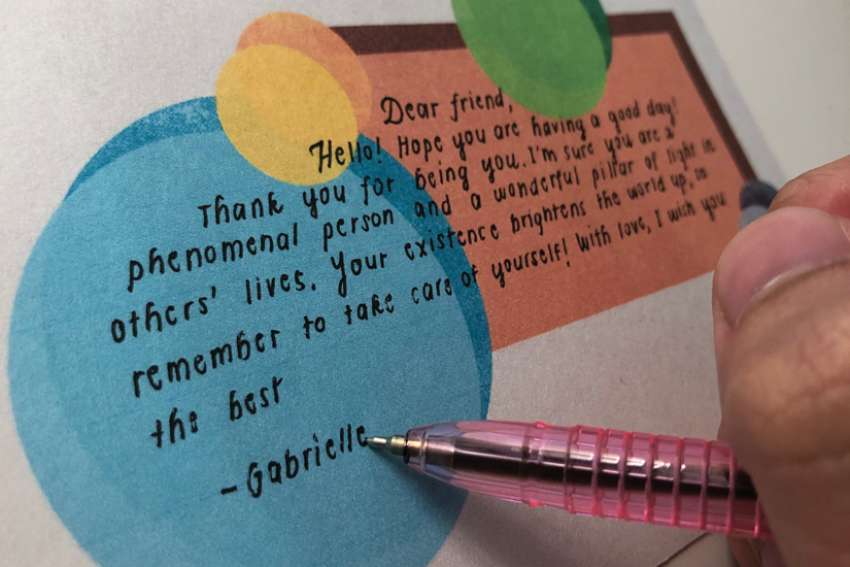 Dear friend,
Hello! Hope you are having a good day!
Thank you for being you. I'm sure you are a
phenomenal person and a wonderful pillar of light in
others' lives. Your existence brightens the world up, so
remember to take care of yourself! With love, I wish you
the best
-Gabrielle